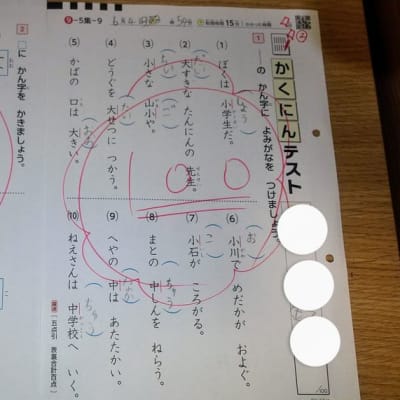 9-5集-9
15分
かくにんテスト
1 ――の かん字に よみがなを つけましょう。
(1) ぼくは 小学生だ。
(しょう)
(2) 大すきな たんにんの 先生。
(だい)
(3) 小さな 山小や。
(ちい)
(4) どうぐを 大せつに つかう。
(たい)
(5) かばの 口は 大きい。
(おお)
(6) 小川で めだかが およぐ。
(お)
(7) 小石が ころがる。
(こ)
(8) まとの 中しんを ねらう。
(ちゅう)
(9) へやの 中は あたたかい。
(なか)
(10) ねえさんは 中学校へ いく。
(ちゅう)
100
/100
2 に かん字を かきましょう。